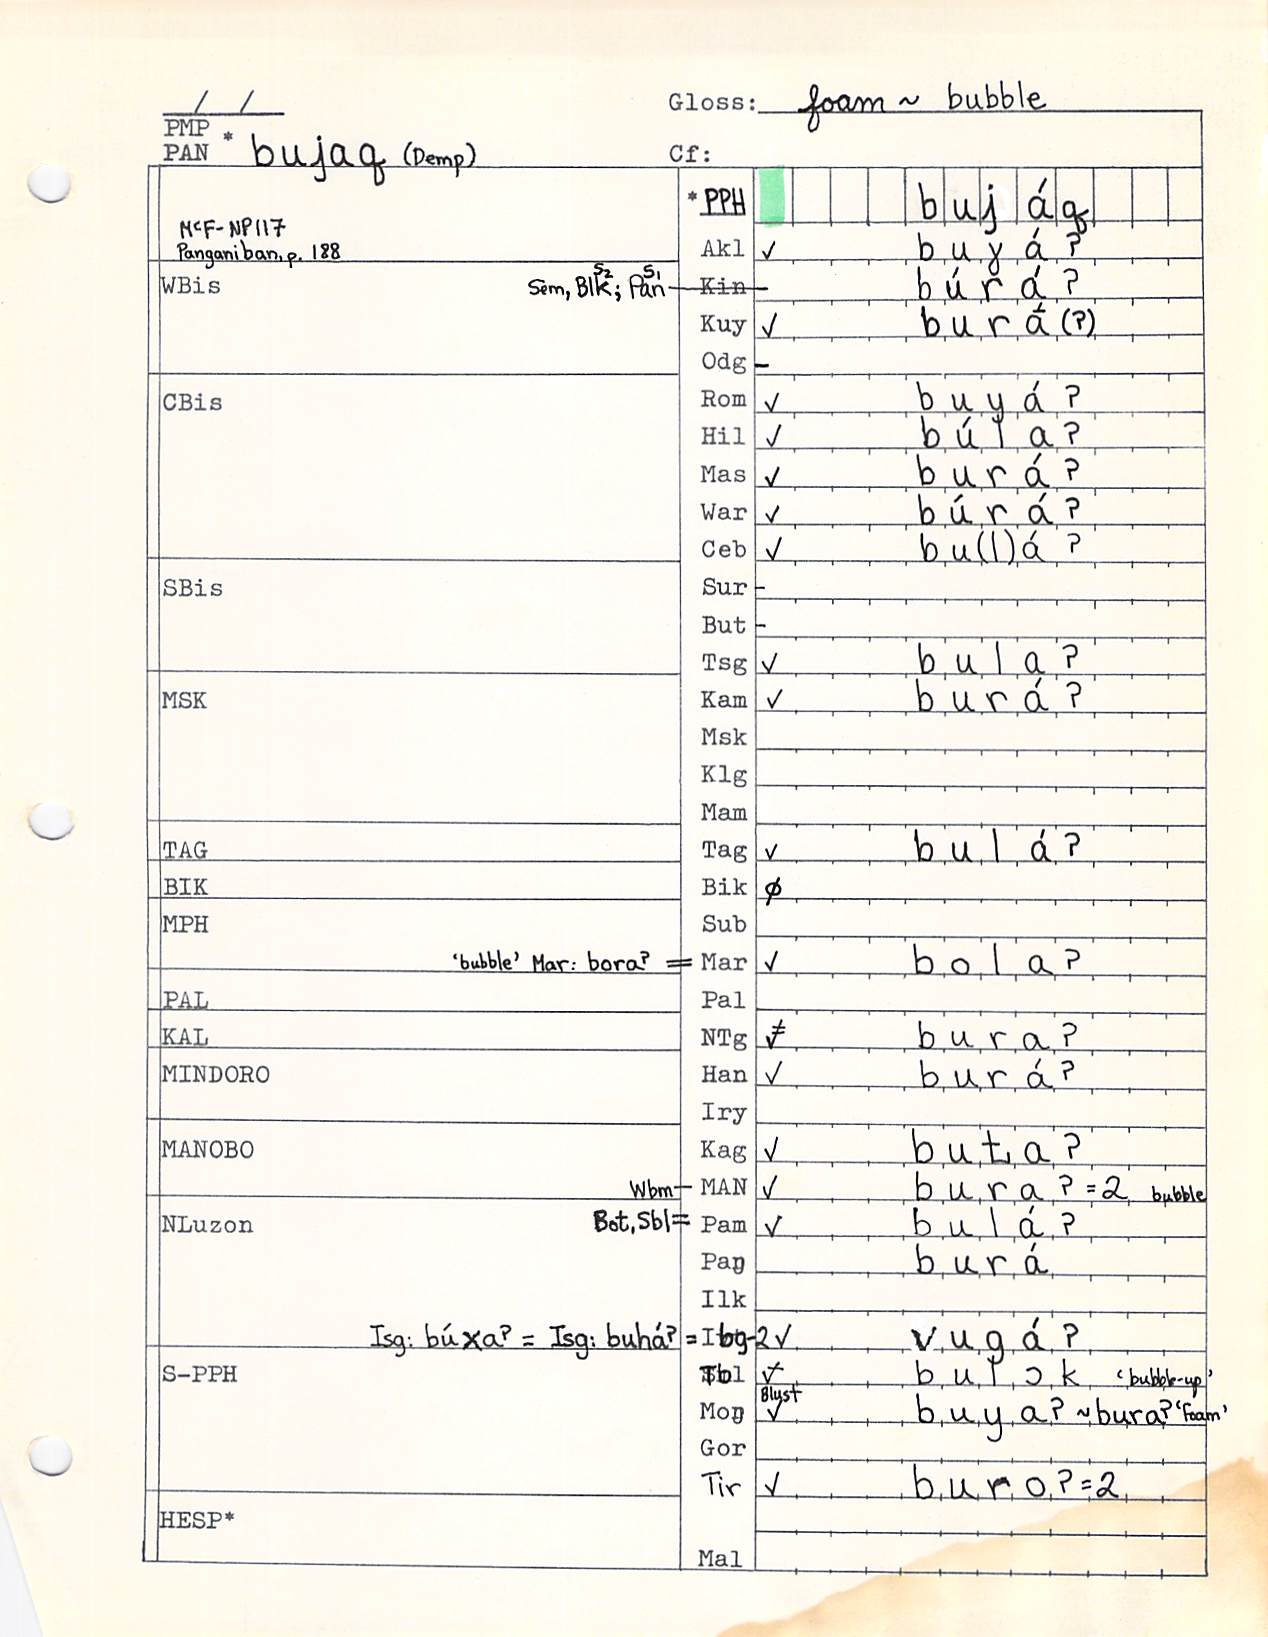 / / Gloss: foam ~ bubble
PMP
PAN * bujaq (Demp) Cf:
* PPH bujáq
McF-NP117
Panganiban, p. 188 Akl ✓ buɣáʔ
WBis Sem, Blk S2; Pan S1 — Kin — búráʔ
Kuy ✓ burá(ʔ)
Odg –
CBis Rom ✓ buyáʔ
Hil ✓ búlaʔ
Mas ✓ buráʔ
War ✓ búráʔ
Ceb ✓ bu(l)áʔ
SBis Sur -
But -
Tsg ✓ bulaʔ
MSK Kam ✓ buráʔ
Msk
Klg
Mam
TAG Tag ✓ buláʔ
BIK Bik ∅
MPH Sub
'bubble' Mar: boraʔ = Mar ✓ bolaʔ
PAL Pal
KAL NTg ≠ buraʔ
MINDORO Han ✓ buráʔ
Iry
MANOBO Kag ✓ buʔ
Wbm — MAN ✓ buraʔ =2 bubble
NLuzon Bot, Sbl = Pam ✓ buláʔ
Paŋ burá
Ilk
Isg: búxaʔ = Isg: buháʔ = Ibg-2 ✓ vugáʔ
S-PPH Tbl bulɔk 'bubble-up'
Blust
Moŋ ✓ buyaʔ ~ buraʔ 'foam'
Gor
Tir ✓ buroʔ =2
HESP*
Mal